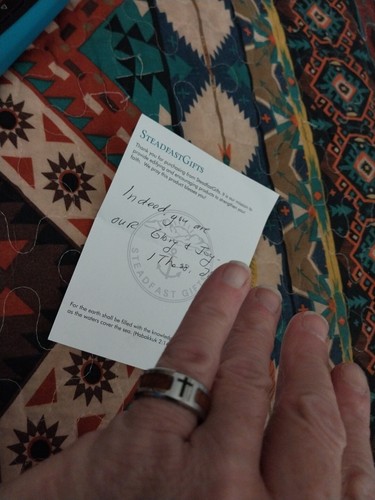 STEADFASTGIFTS
Thank you for purchasing from SteadfastGifts. It is our mission to
provide edifying and encouraging products to strengthen your
faith. We pray this product blesses you!
Indeed, you are
our Glory & Joy.
1 Thess. 2
STEADFAST GIFTS
For the earth shall be filled with the knowledge
as the waters cover the sea. (Habakkuk 2:14